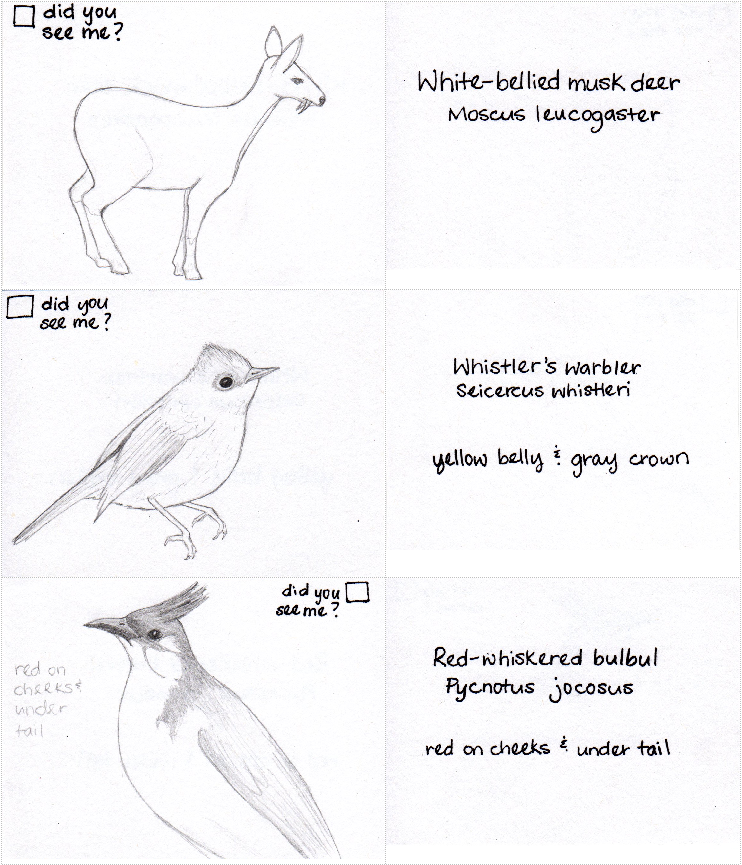 did you
see me?
White-bellied musk deer
Moscus leucogaster
did you
see me?
Whistler's warbler
Seicercus whistleri
yellow belly & gray crown
did you
see me?
red on
cheeks &
under
tail
Red-whiskered bulbul
Pycnotus jocosus
red on cheeks & under tail